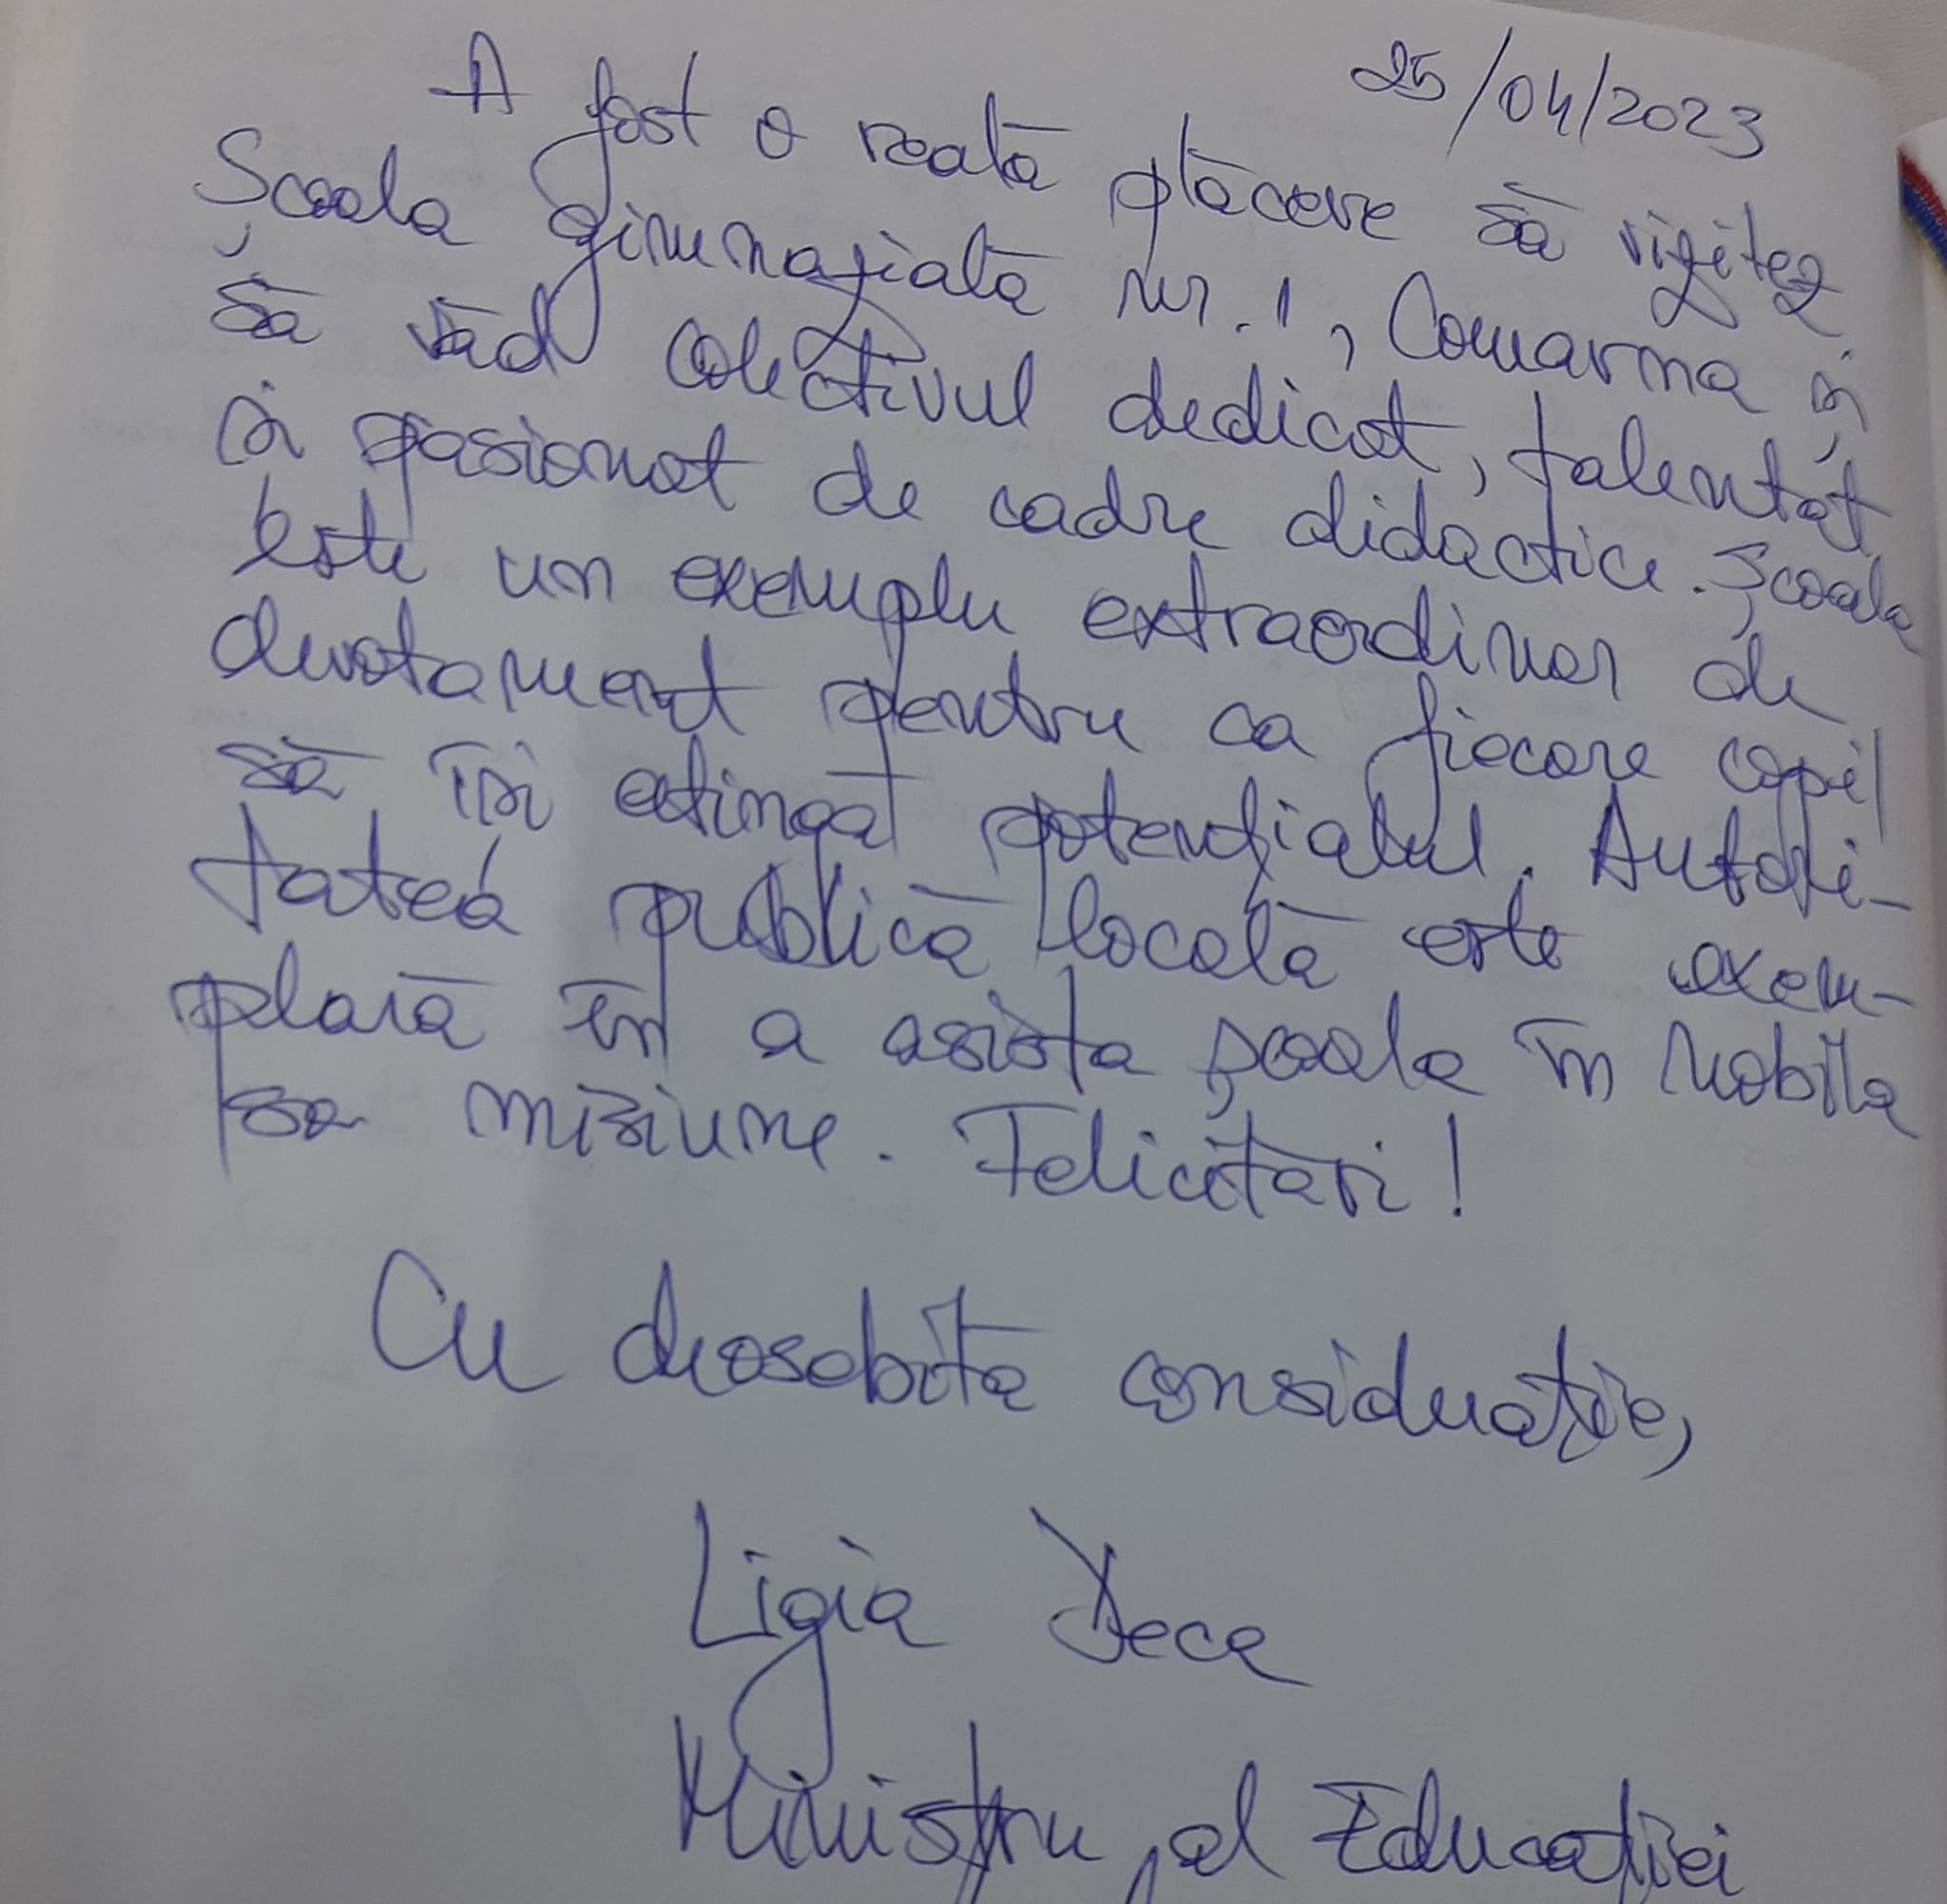 25/04/2023
A fost o reală plăcere să vizitez
Școala gimnazială nr. 1, Comarna și
să văd colectivul dedicat, talentat
și pasionat de cadre didactice. Școala
este un exemplu extraordinar de
devotament pentru ca fiecare copil
să își atingă potențialul. Autori-
tatea publică locală este exem-
plară în a asista școala în nobila
sa misiune. Felicitări!
Cu deosebită considerație,
Ligia Deca
Ministru al Educației